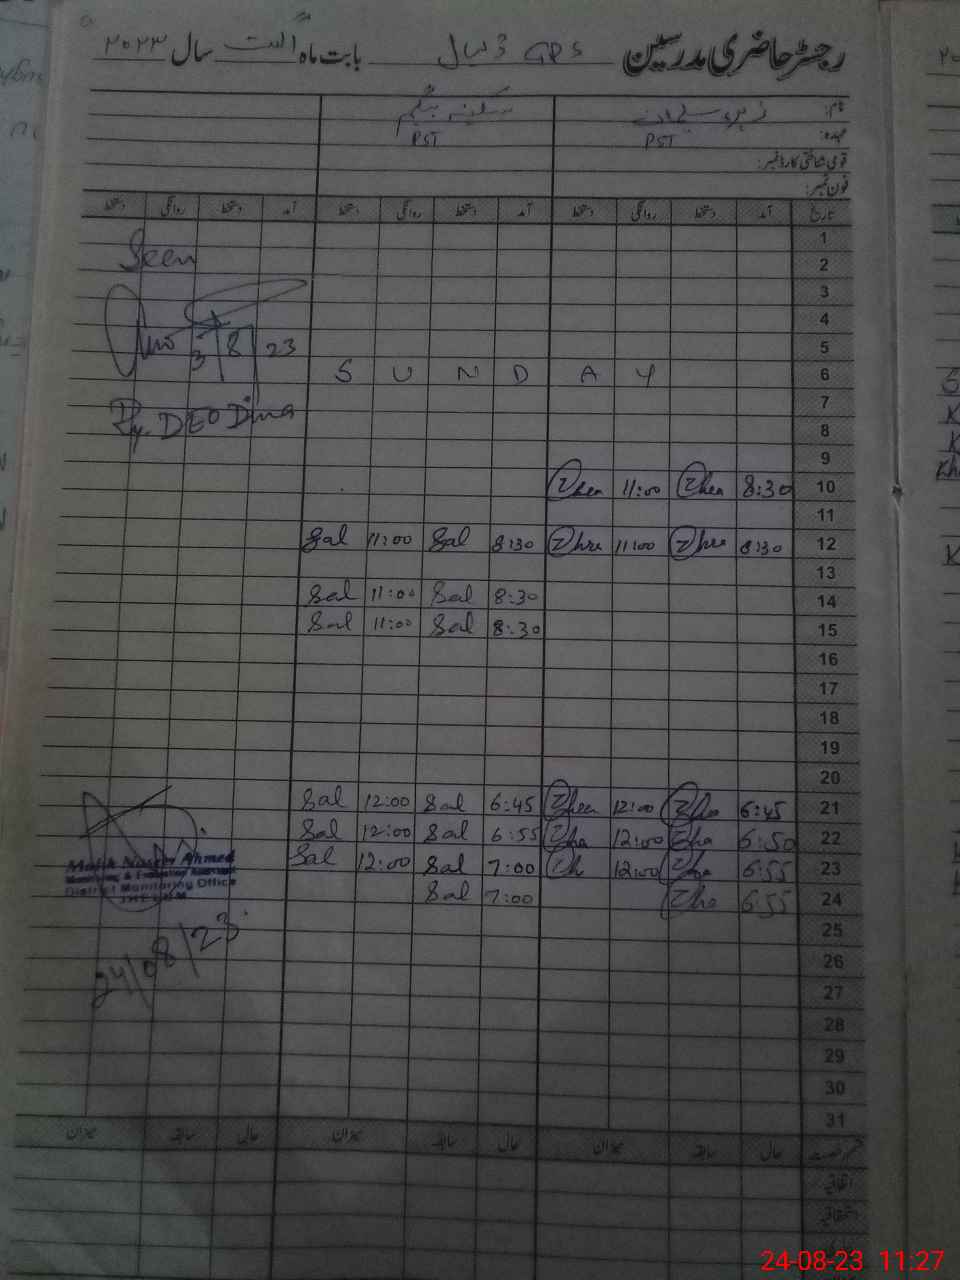 رجسٹر حاضری مدرسین GPS ڈسال بابت ماہ اگست سال ۲۰۲۳
نام:
عہدہ: PST PST
قومی شناختی کارڈ نمبر:
فون نمبر:
تاریخ آمد دستخط روانگی دستخط آمد دستخط روانگی دستخط آمد دستخط روانگی دستخط
1
2 Seen
3
4
5 3/8/23
6 S U N D A Y
7 Dy. DEO Dina
8
9
10 8:30 Zhea 11:00 Zhea
11
12 8:30 Zhre 11:00 Zhre 8:30 Sal 11:00 Sal
13
14 8:30 Sal 11:00 Sal
15 8:30 Sal 11:00 Sal
16
17
18
19
20
21 6:45 12:00 Zhea 6:45 Sal 12:00 Sal
22 6:50 Zha 12:00 Zha 6:55 Sal 12:00 Sal
23 6:55 12:00 7:00 Sal 12:00 Sal
24 6:55 7:00 Sal
Malik Naseer Ahmed
Monitoring & Evaluation Assistant
District Monitoring Office
JHELUM
25
26 24/08/23
27
28
29
30
31
حال سابقہ میزان حال سابقہ میزان حال سابقہ میزان
اتفاقیہ
استحقاقیہ
24-08-23 11:27